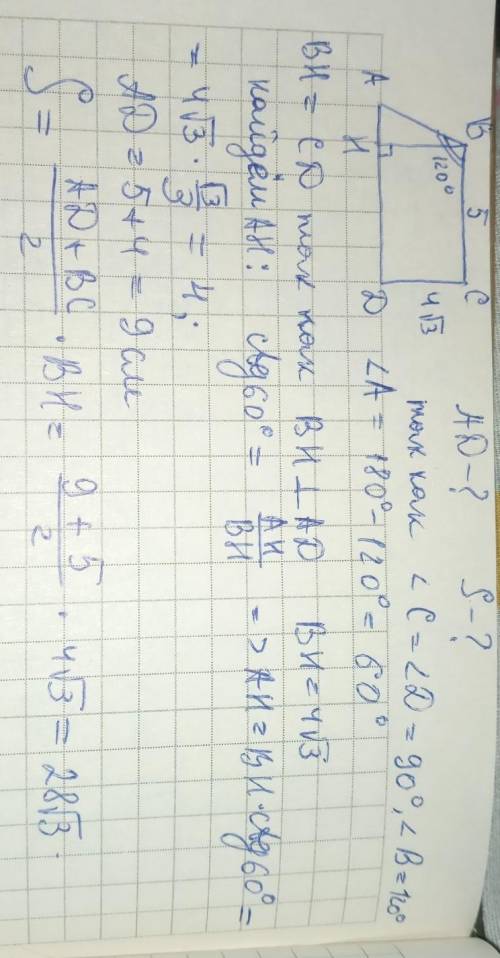 AD-? S-?
B 5 C
120°
4√3
A H D
так как ∠C = ∠D = 90°, ∠B = 120°
∠A = 180° - 120° = 60°
BH = CD так как BH ⊥ AD BH = 4√3
найдём AH: ctg 60° = AH/BH => AH = BH · ctg 60° =
= 4√3 · √3/3 = 4;
AD = 5 + 4 = 9 см
S = (AD + BC)/2 · BH = (9 + 5)/2 · 4√3 = 28√3.